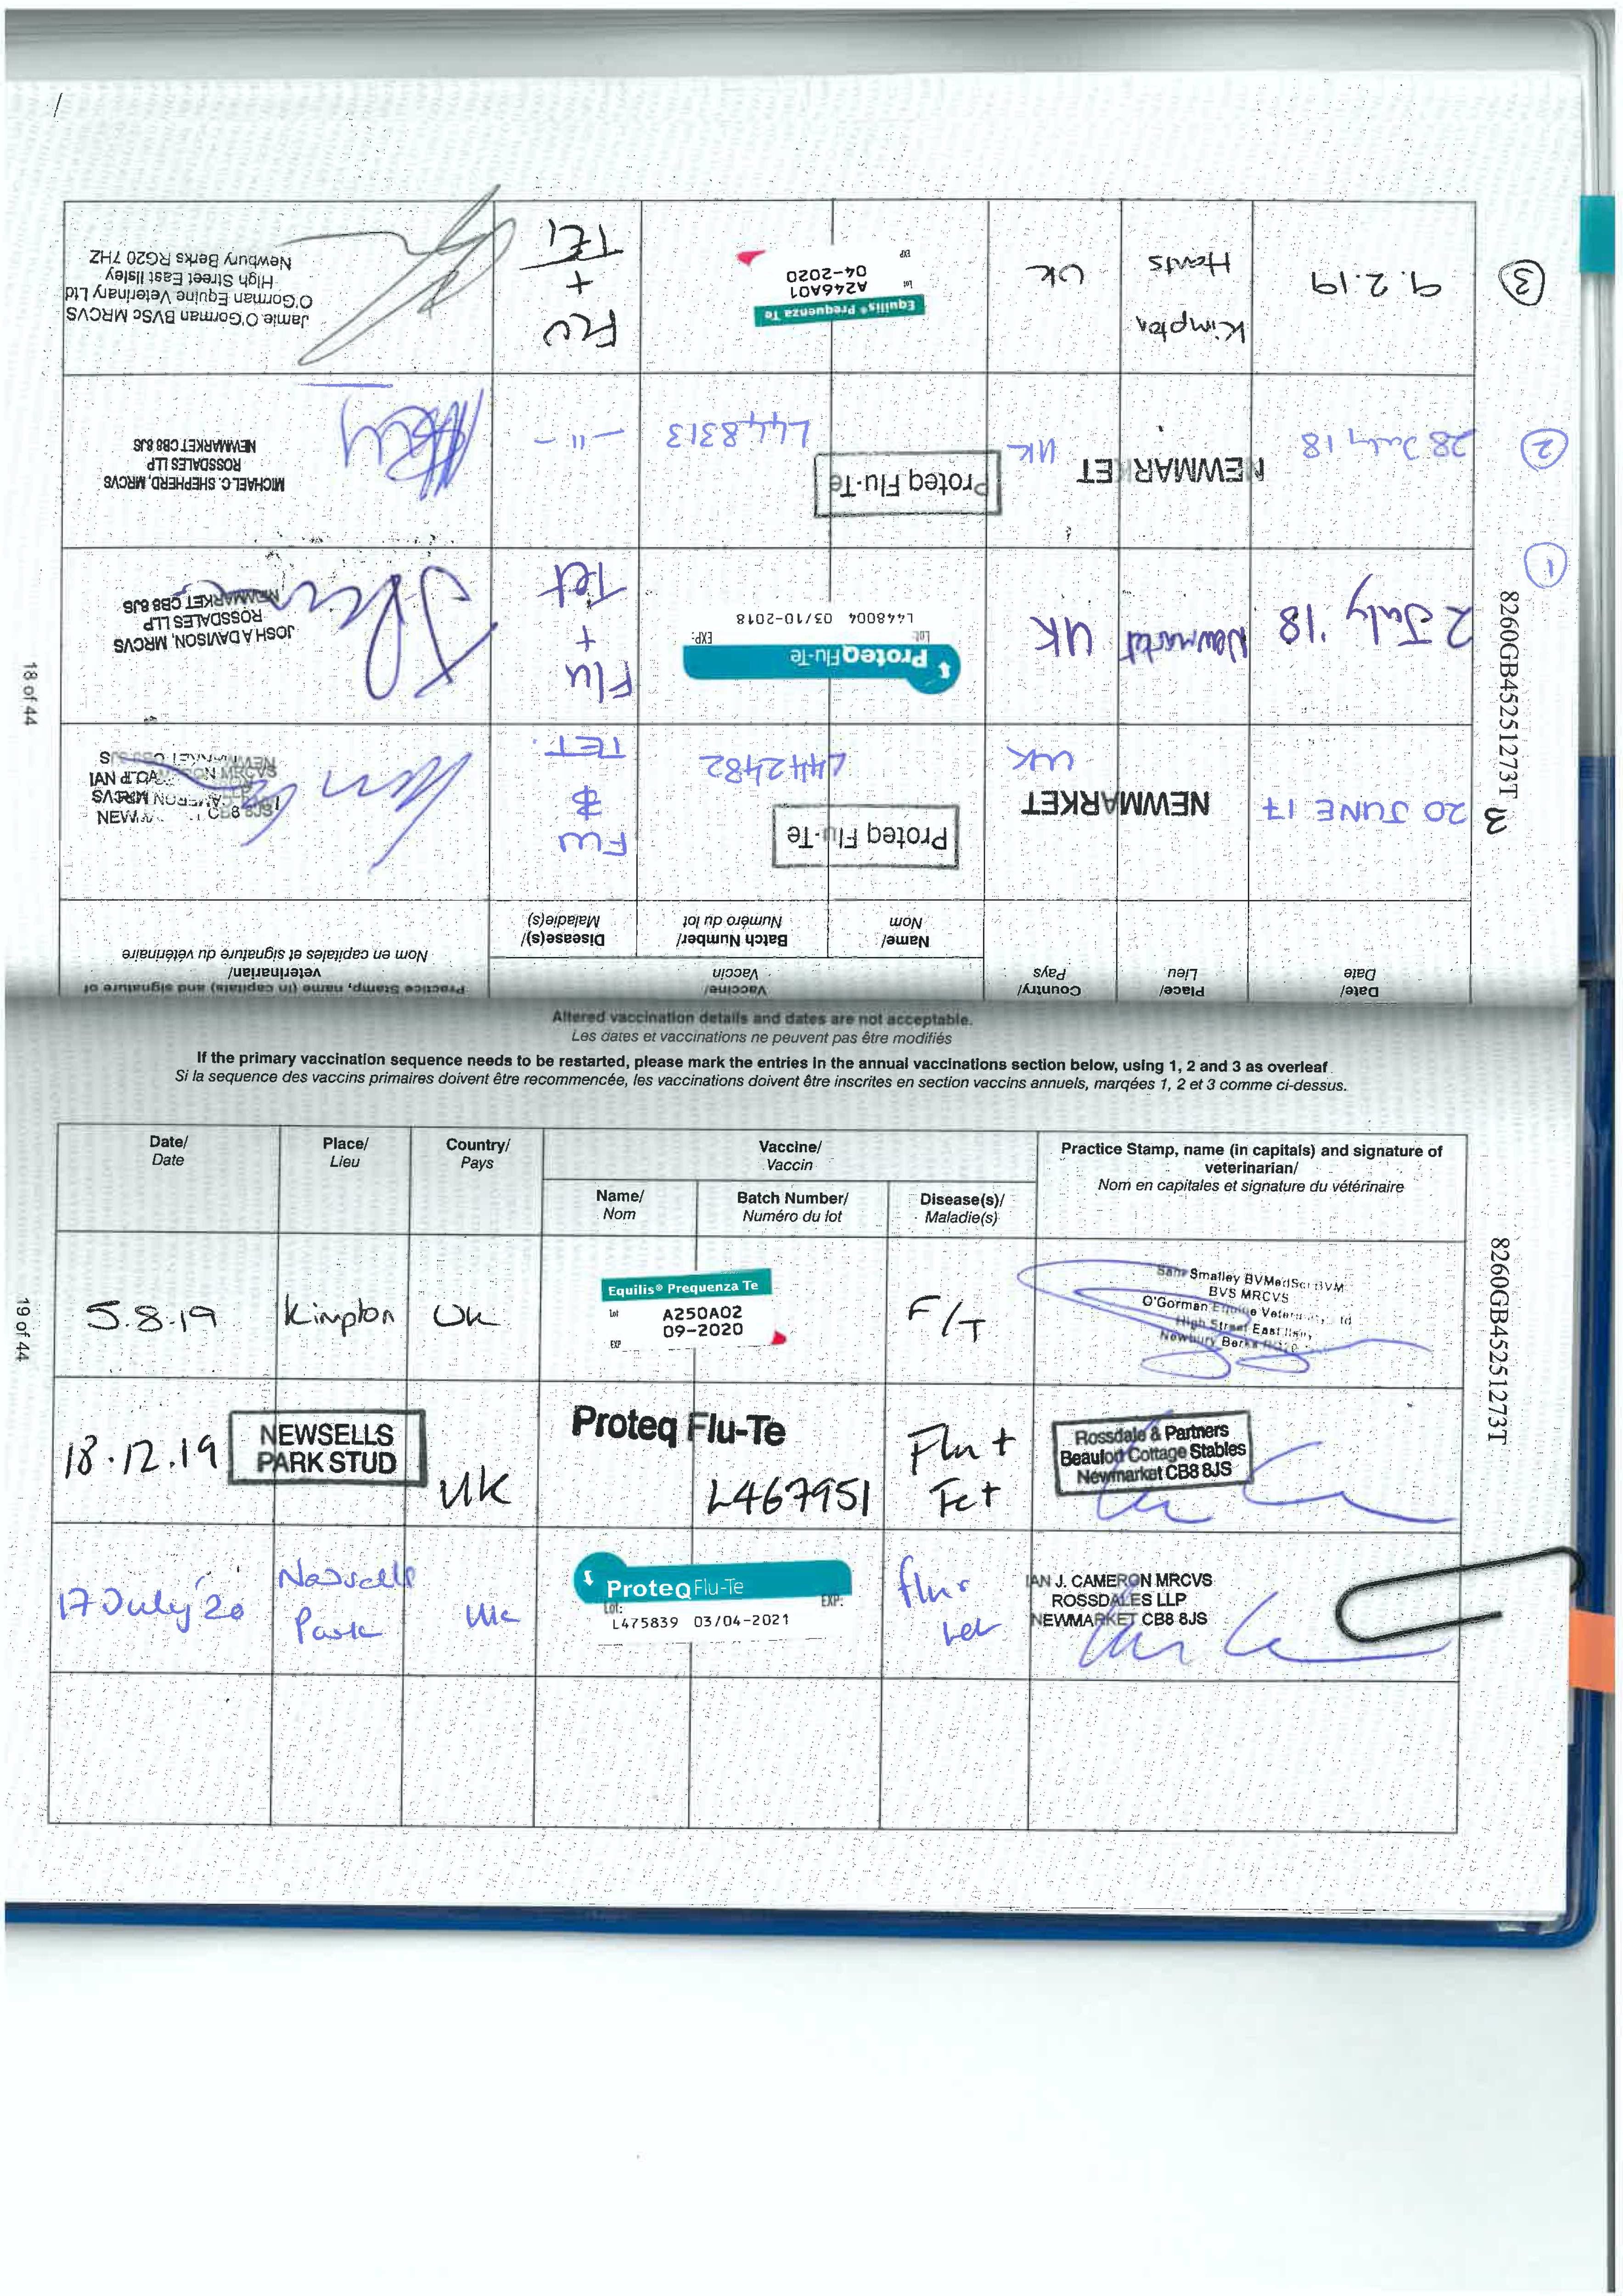 Date/
Date
Place/
Lieu
Country/
Pays
Vaccine/
Vaccin
Practice Stamp, name (in capitals) and signature of
veterinarian/
Nom en capitales et signature du vétérinaire
Name/
Nom
Batch Number/
Numéro du lot
Disease(s)/
Maladie(s)
3
20 JUNE 17
NEWMARKET
UK
Proteq Flu-Te
L442482
FLU
&
TET.
1
2 July '18
Newmarket
UK
ProteqFlu-Te
Lot:
EXP:
L448004 03/10-2018
Flu
+
Tet
JOSH A DAVISON, MRCVS
ROSSDALES LLP
NEWMARKET CB8 8JS
2
28 July 18
NEWMARKET
UK
Proteq Flu-Te
L448313
-"-
MICHAEL C. SHEPHERD, MRCVS
ROSSDALES LLP
NEWMARKET CB8 8JS
3
9.2.19
Kimpton
Hants
UK
Equilis® Prequenza Te
Lot
A246A01
04-2020
EXP
FLU
+
TET
Jamie O'Gorman BVSc MRCVS
O'Gorman Equine Veterinary Ltd
High Street East Ilsley
Newbury Berks RG20 7HZ
8260GB45251273T
18 of 44
Altered vaccination details and dates are not acceptable.
Les dates et vaccinations ne peuvent pas être modifiés
If the primary vaccination sequence needs to be restarted, please mark the entries in the annual vaccinations section below, using 1, 2 and 3 as overleaf
Si la sequence des vaccins primaires doivent être recommencée, les vaccinations doivent être inscrites en section vaccins annuels, marqées 1, 2 et 3 comme ci-dessus.
Date/
Date
Place/
Lieu
Country/
Pays
Vaccine/
Vaccin
Practice Stamp, name (in capitals) and signature of
veterinarian/
Nom en capitales et signature du vétérinaire
Name/
Nom
Batch Number/
Numéro du lot
Disease(s)/
Maladie(s)
5.8.19
Kimpton
UK
Equilis® Prequenza Te
Lot
A250A02
09-2020
EXP
F/T
Sam Smalley BVMedSci BVM
BVS MRCVS
O'Gorman Equine
High Street East
Newbury Berks
18.12.19
NEWSELLS
PARK STUD
UK
Proteq Flu-Te
L467951
Flu +
Tet
Rossdale & Partners
Beaufort Cottage Stables
Newmarket CB8 8JS
17 July 20
Newsells
Park
UK
ProteqFlu-Te
Lot:
EXP:
L475839 03/04-2021
flu +
tet
IAN J. CAMERON MRCVS
ROSSDALES LLP
NEWMARKET CB8 8JS
8260GB45251273T
19 of 44